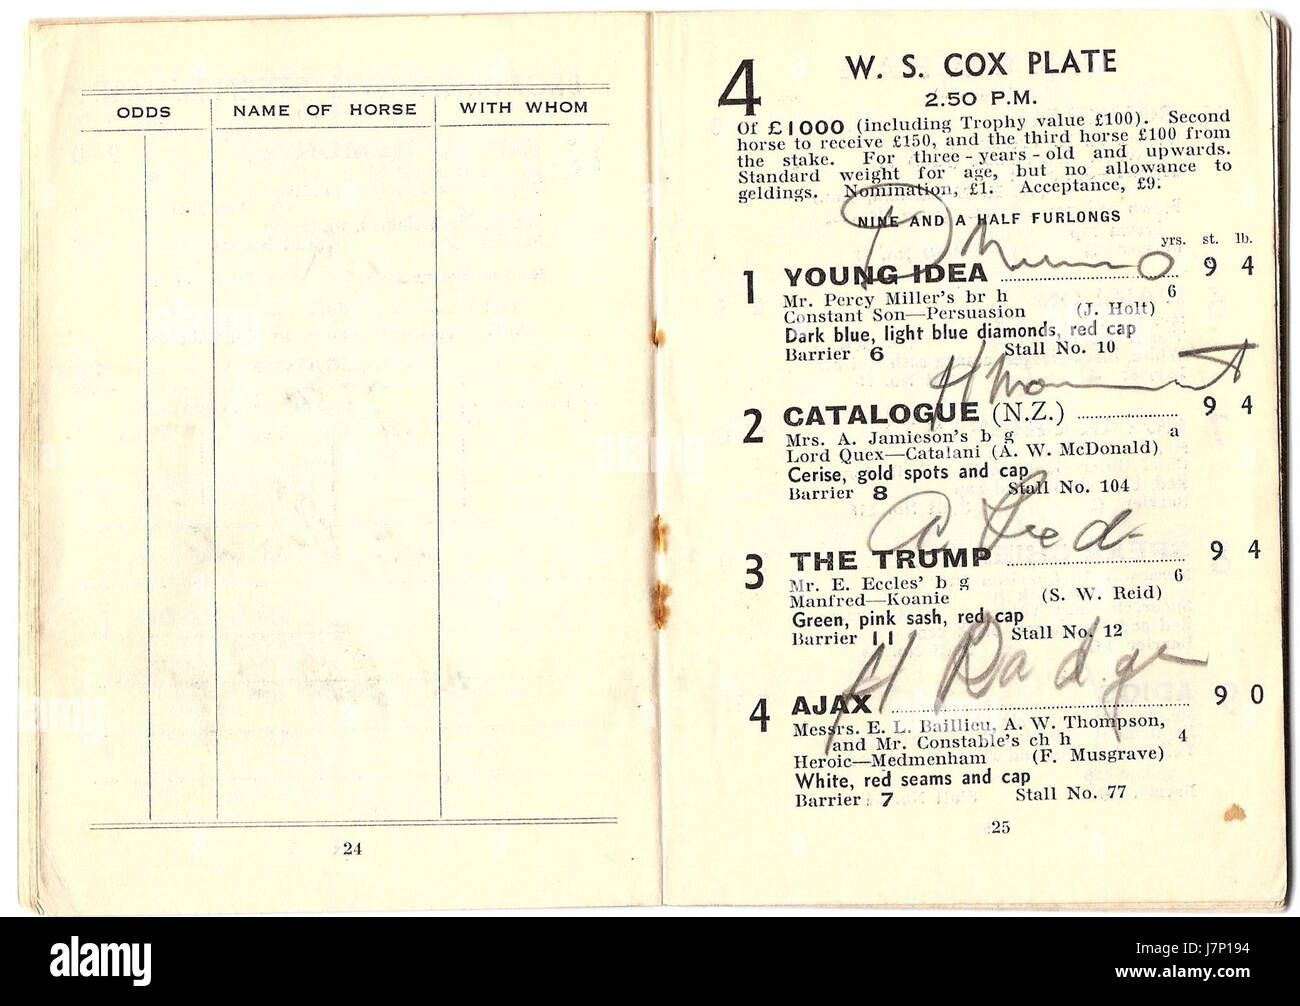 ODDS NAME OF HORSE WITH WHOM
24
4
W. S. COX PLATE
2.50 P.M.
Of £1000 (including Trophy value £100). Second
horse to receive £150, and the third horse £100 from
the stake. For three-years-old and upwards.
Standard weight for age, but no allowance to
geldings. Nomination, £1. Acceptance, £9.
NINE AND A HALF FURLONGS
yrs. st. lb.
D Munro
1 YOUNG IDEA 9 4
Mr. Percy Miller's br h 6
Constant Son—Persuasion (J. Holt)
Dark blue, light blue diamonds, red cap
Barrier 6 Stall No. 10
H
2 CATALOGUE (N.Z.) 9 4
Mrs. A. Jamieson's b g a
Lord Quex—Catalani (A. W. McDonald)
Cerise, gold spots and cap
Barrier 8 Stall No. 104
3 THE TRUMP 9 4
Mr. E. Eccles' b g 6
Manfred—Koanie (S. W. Reid)
Green, pink sash, red cap
Barrier 11 Stall No. 12
H Badger
4 AJAX 9 0
Messrs. E. L. Baillieu, A. W. Thompson,
and Mr. Constable's ch h 4
Heroic—Medmenham (F. Musgrave)
White, red seams and cap
Barrier 7 Stall No. 77
25
alamy
Image ID: J7P194
www.alamy.com